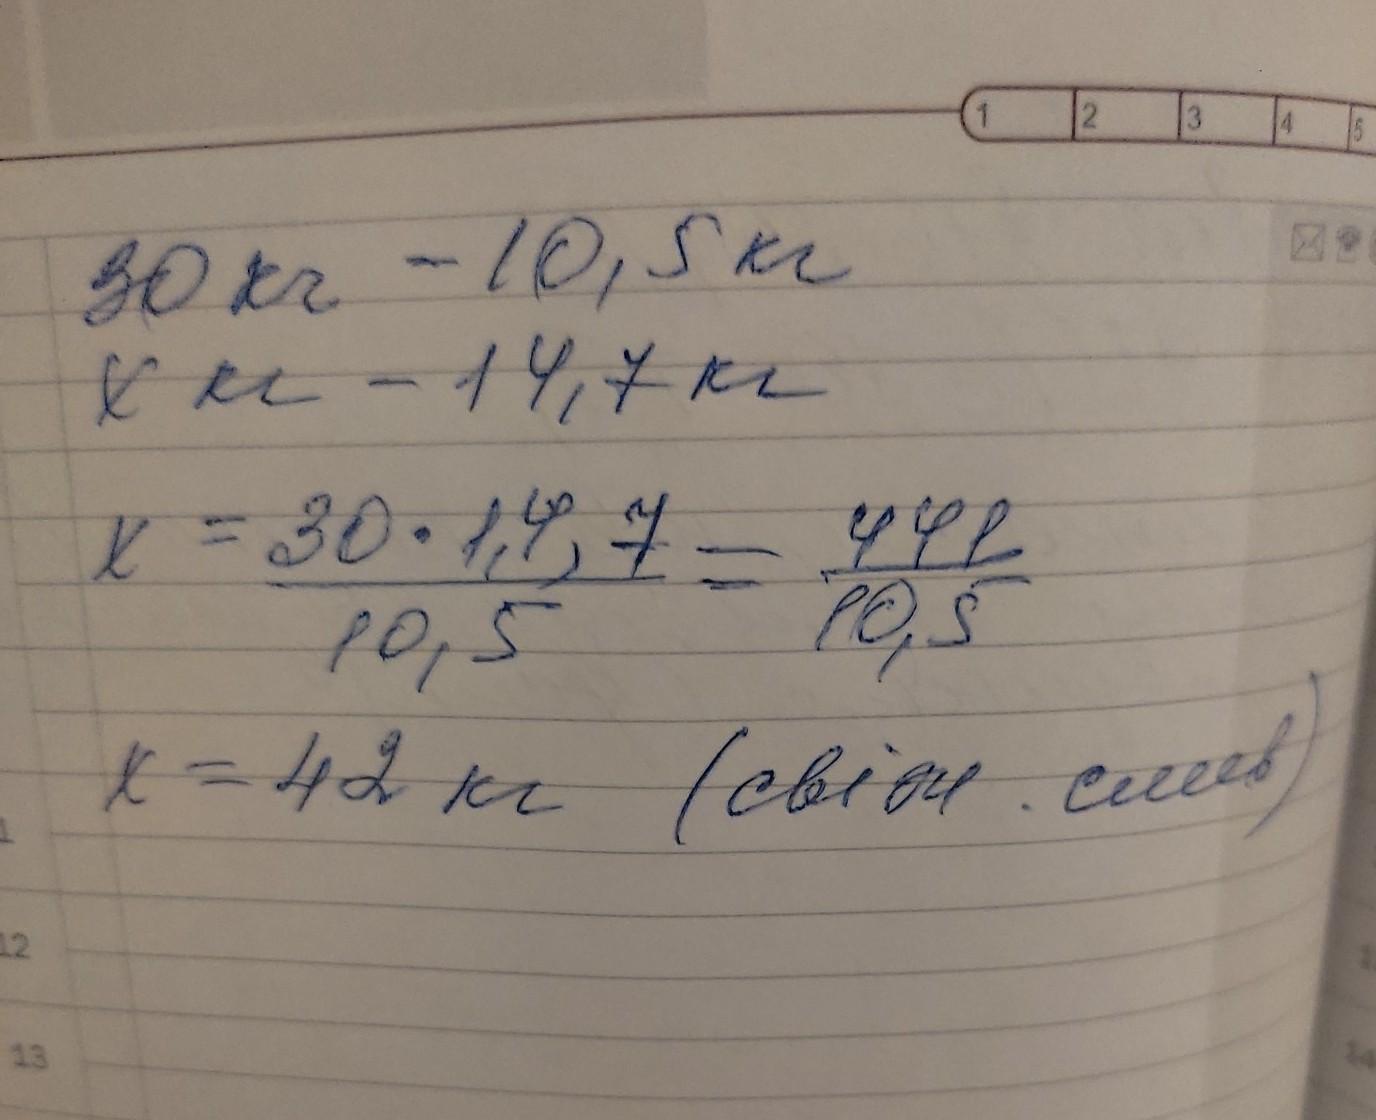 1 2 3 4 5
30 кг - 10,5 кг
х кг - 14,7 кг
х = 30 · 1,4,7 / 10,5 = 441 / 10,5
х = 42 кг (свіж. слив)
1
12
13
14